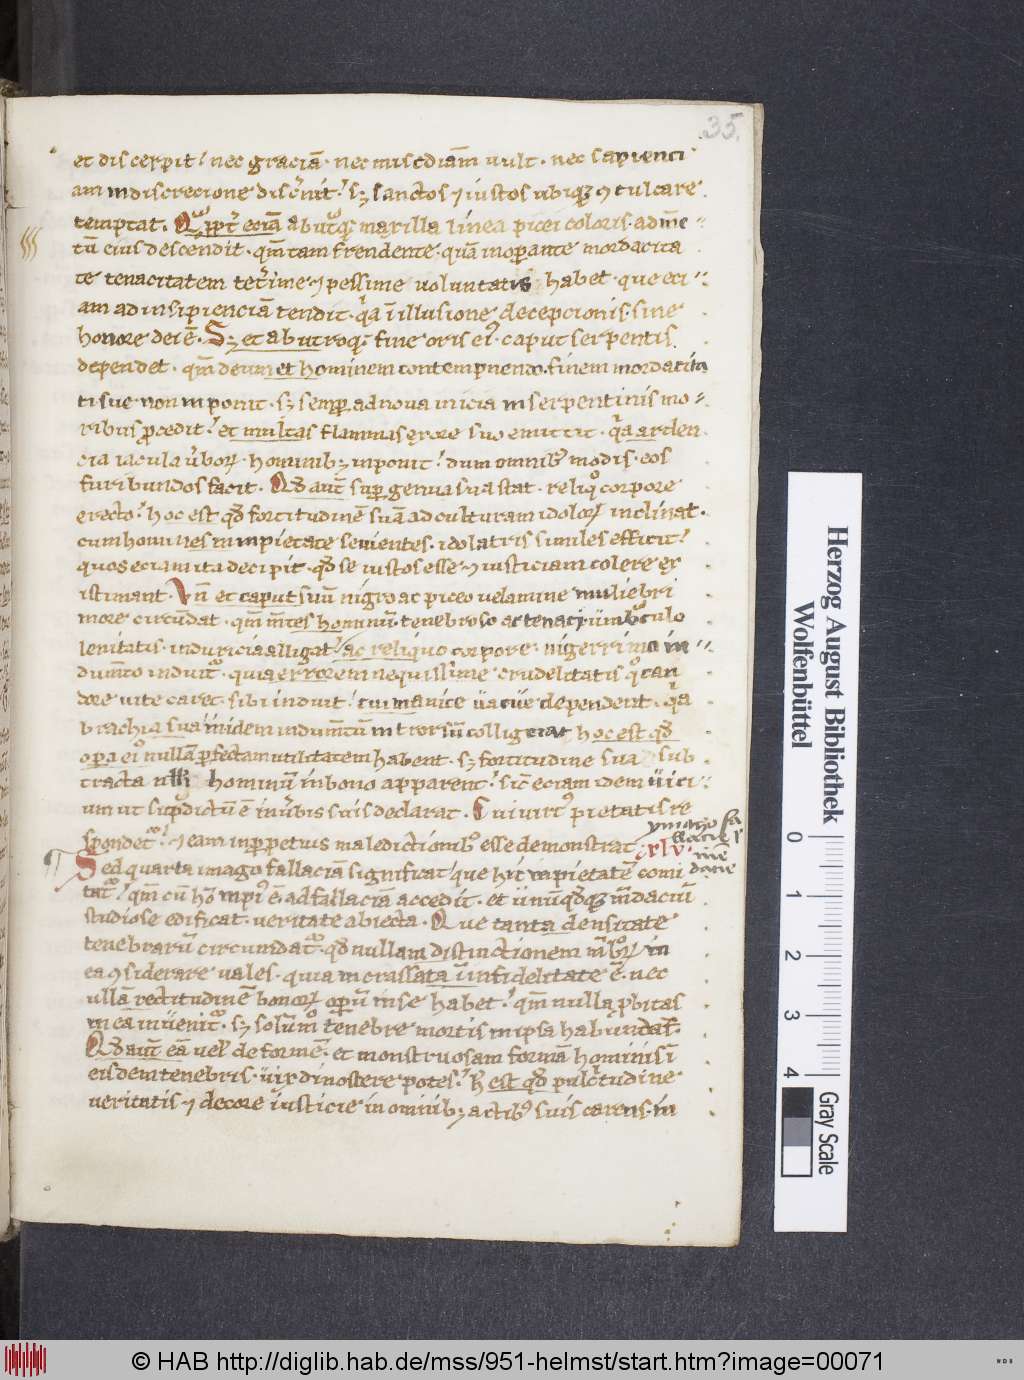 35.
et discerpit. nec graciā. nec miscdiam vult. nec sapienci
am in discrecione disc̄nit. sʒ sanctos ⁊ iustos ubiqʒ ꝯculcare
temptat. Qͦ ꝓpt̄ eciā ab utͦqʒ maxilla linea picei coloris. ad m̄e
tū eius descendit. qm̄ tam frendente. quā inoꝑante mordacita
te tenacitatem tet̄ime ⁊ pessime voluntatis habet. que eci
am ad insipienciā tendit. qͣ ī illusione decepcionis. sine
honore dei ē. Sʒ et ab utroqʒ fine oris eiꝰ. caput serpentis
dependet. qm̄ deum et hominem contempnendo. finem mordacita
ti sue non inponit. sʒ semꝑ ad nova inicia in serpentinis mo
ribus ꝓcedit. et multas flammas ex ore suo emittit. qͣ arden
cia iacula v̄borꝝ. hominibʒ inponit. dum omnibꝰ modis. eos
furibundos facit. Qd̄ aut̄ suꝑ genua sua stat. reliqͦ corpore
erecto. hoc est qd̄ fortitudinē suā ad culturam idolorꝝ inclinat.
cum homines in inpietate sevientes. idolatris similes efficit.
quos eciam ita decipit. qd̄ se iustos esse ⁊ iusticiam colere ex
istimant. Un̄ et caput suū nigro ac piceo velamine muliebri
more circūdat. qm̄ m̄tes hominū tenebroso ac tenaci umbͣculo
lenitatis. in duricia alligat. ac reliquo corpore. nigerrimo in
dumͦto induitͬ. quia errorem nequissime crudelitatis qͦ can
dore vite caret. sibi induit. cui manice vacue dependent. qͣ
brachia sua in idem indumͦtū introrsū colligerat hoc est qd̄
oꝑa eiꝰ nullā ꝑfectam utilitatem habent. sʒ fortitudine sua sub
tracta ulli hominū in bono apparent. sic̄ eciam idem vici
um ut sup̄dictū ē in v̄bis suis declarat. Cui virtꝰ pietatis re
spondetͬ. ⁊ eam in ꝑpetuis maledictionibꝰ esse demonstrat. xlv.
ymago fa
llacie
me
dacie
¶ Sed quarta imago fallaciā significat. que hic inpietatē comi
tatͬ. qm̄ cū hō inpiꝰ ē. ad fallaciā accedit. et unūqdqʒ m̄daciū
studiose edificat. veritate abiecta. Que tanta densitate
tenebrarū circumdatͬ. qd̄ nullam distinctionem mͤbrorꝝ in
ea ꝯsiderare vales. quia incrassata ī infidelitate ē. nec
ullā rectitudinē bonorꝝ oꝑū in se habet. qm̄ nulla ꝓbitas
in ea invenitͬ. sʒ solūmͦ tenebre mortis in ipsa habundāt.
Qd̄ aut̄ eā velͧd deformē. et monstruosam formā hominis ī
eisdem tenebris. vix dinoscere potes. h̄ est qd̄ pulcͥtudine
veritatis ⁊ decore iusticie in omnibʒ actibꝰ suis carens. in
Herzog August Bibliothek
Wolfenbüttel
0 1 2 3 4
Gray Scale
© HAB http://diglib.hab.de/mss/951-helmst/start.htm?image=00071
WDB